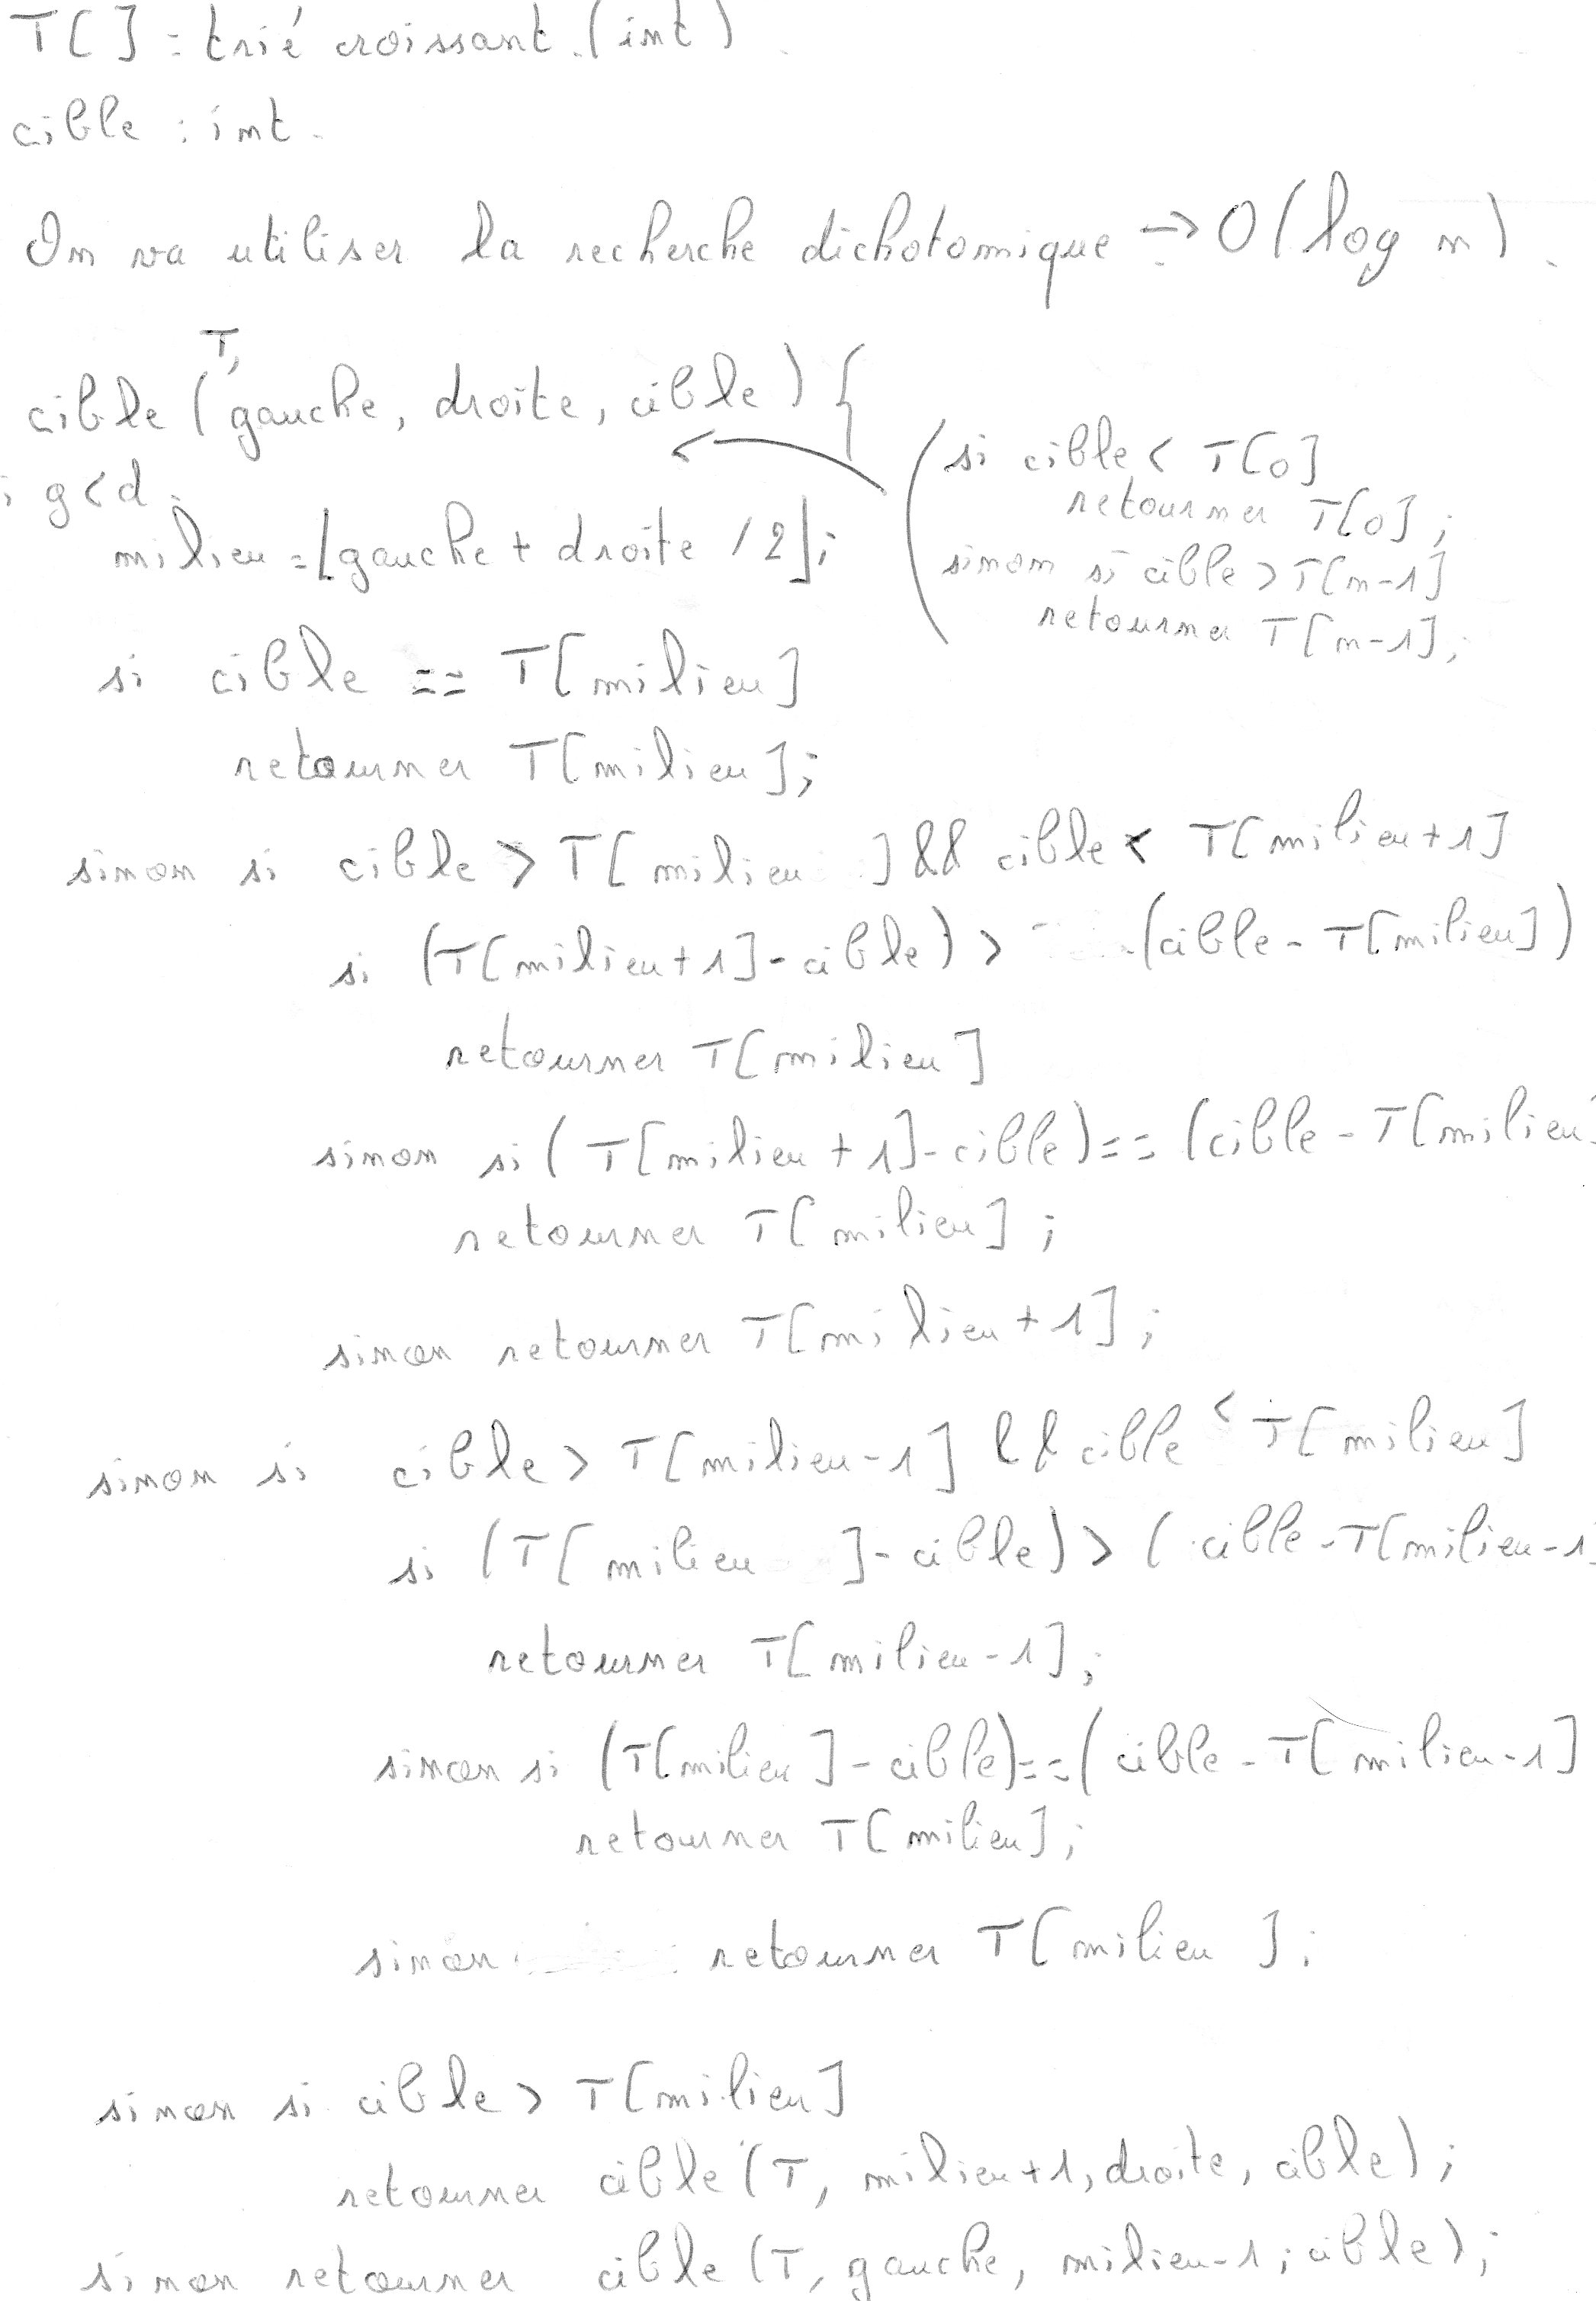 T[] : trié croissant (int).
cible : int.
On va utiliser la recherche dichotomique → O(log n).
T,
cible (gauche, droite, cible) {
si cible < T[0]
retourner T[0];
sinon si cible > T[n-1]
retourner T[n-1];
g<d :
milieu = ⌊gauche + droite / 2⌋;
si cible == T[milieu]
retourner T[milieu];
sinon si cible > T[milieu] && cible < T[milieu+1]
si (T[milieu+1]-cible) > (cible - T[milieu])
retourner T[milieu]
sinon si (T[milieu + 1]-cible) == (cible - T[milieu]
retourner T[milieu];
sinon retourner T[milieu+1];
sinon si cible > T[milieu-1] && cible < T[milieu]
si (T[milieu]-cible) > (cible - T[milieu-1]
retourner T[milieu-1];
sinon si (T[milieu]-cible)==(cible - T[milieu-1]
retourner T[milieu];
sinon retourner T[milieu];
sinon si cible > T[milieu]
retourner cible (T, milieu+1, droite, cible);
sinon retourner cible (T, gauche, milieu-1; cible);